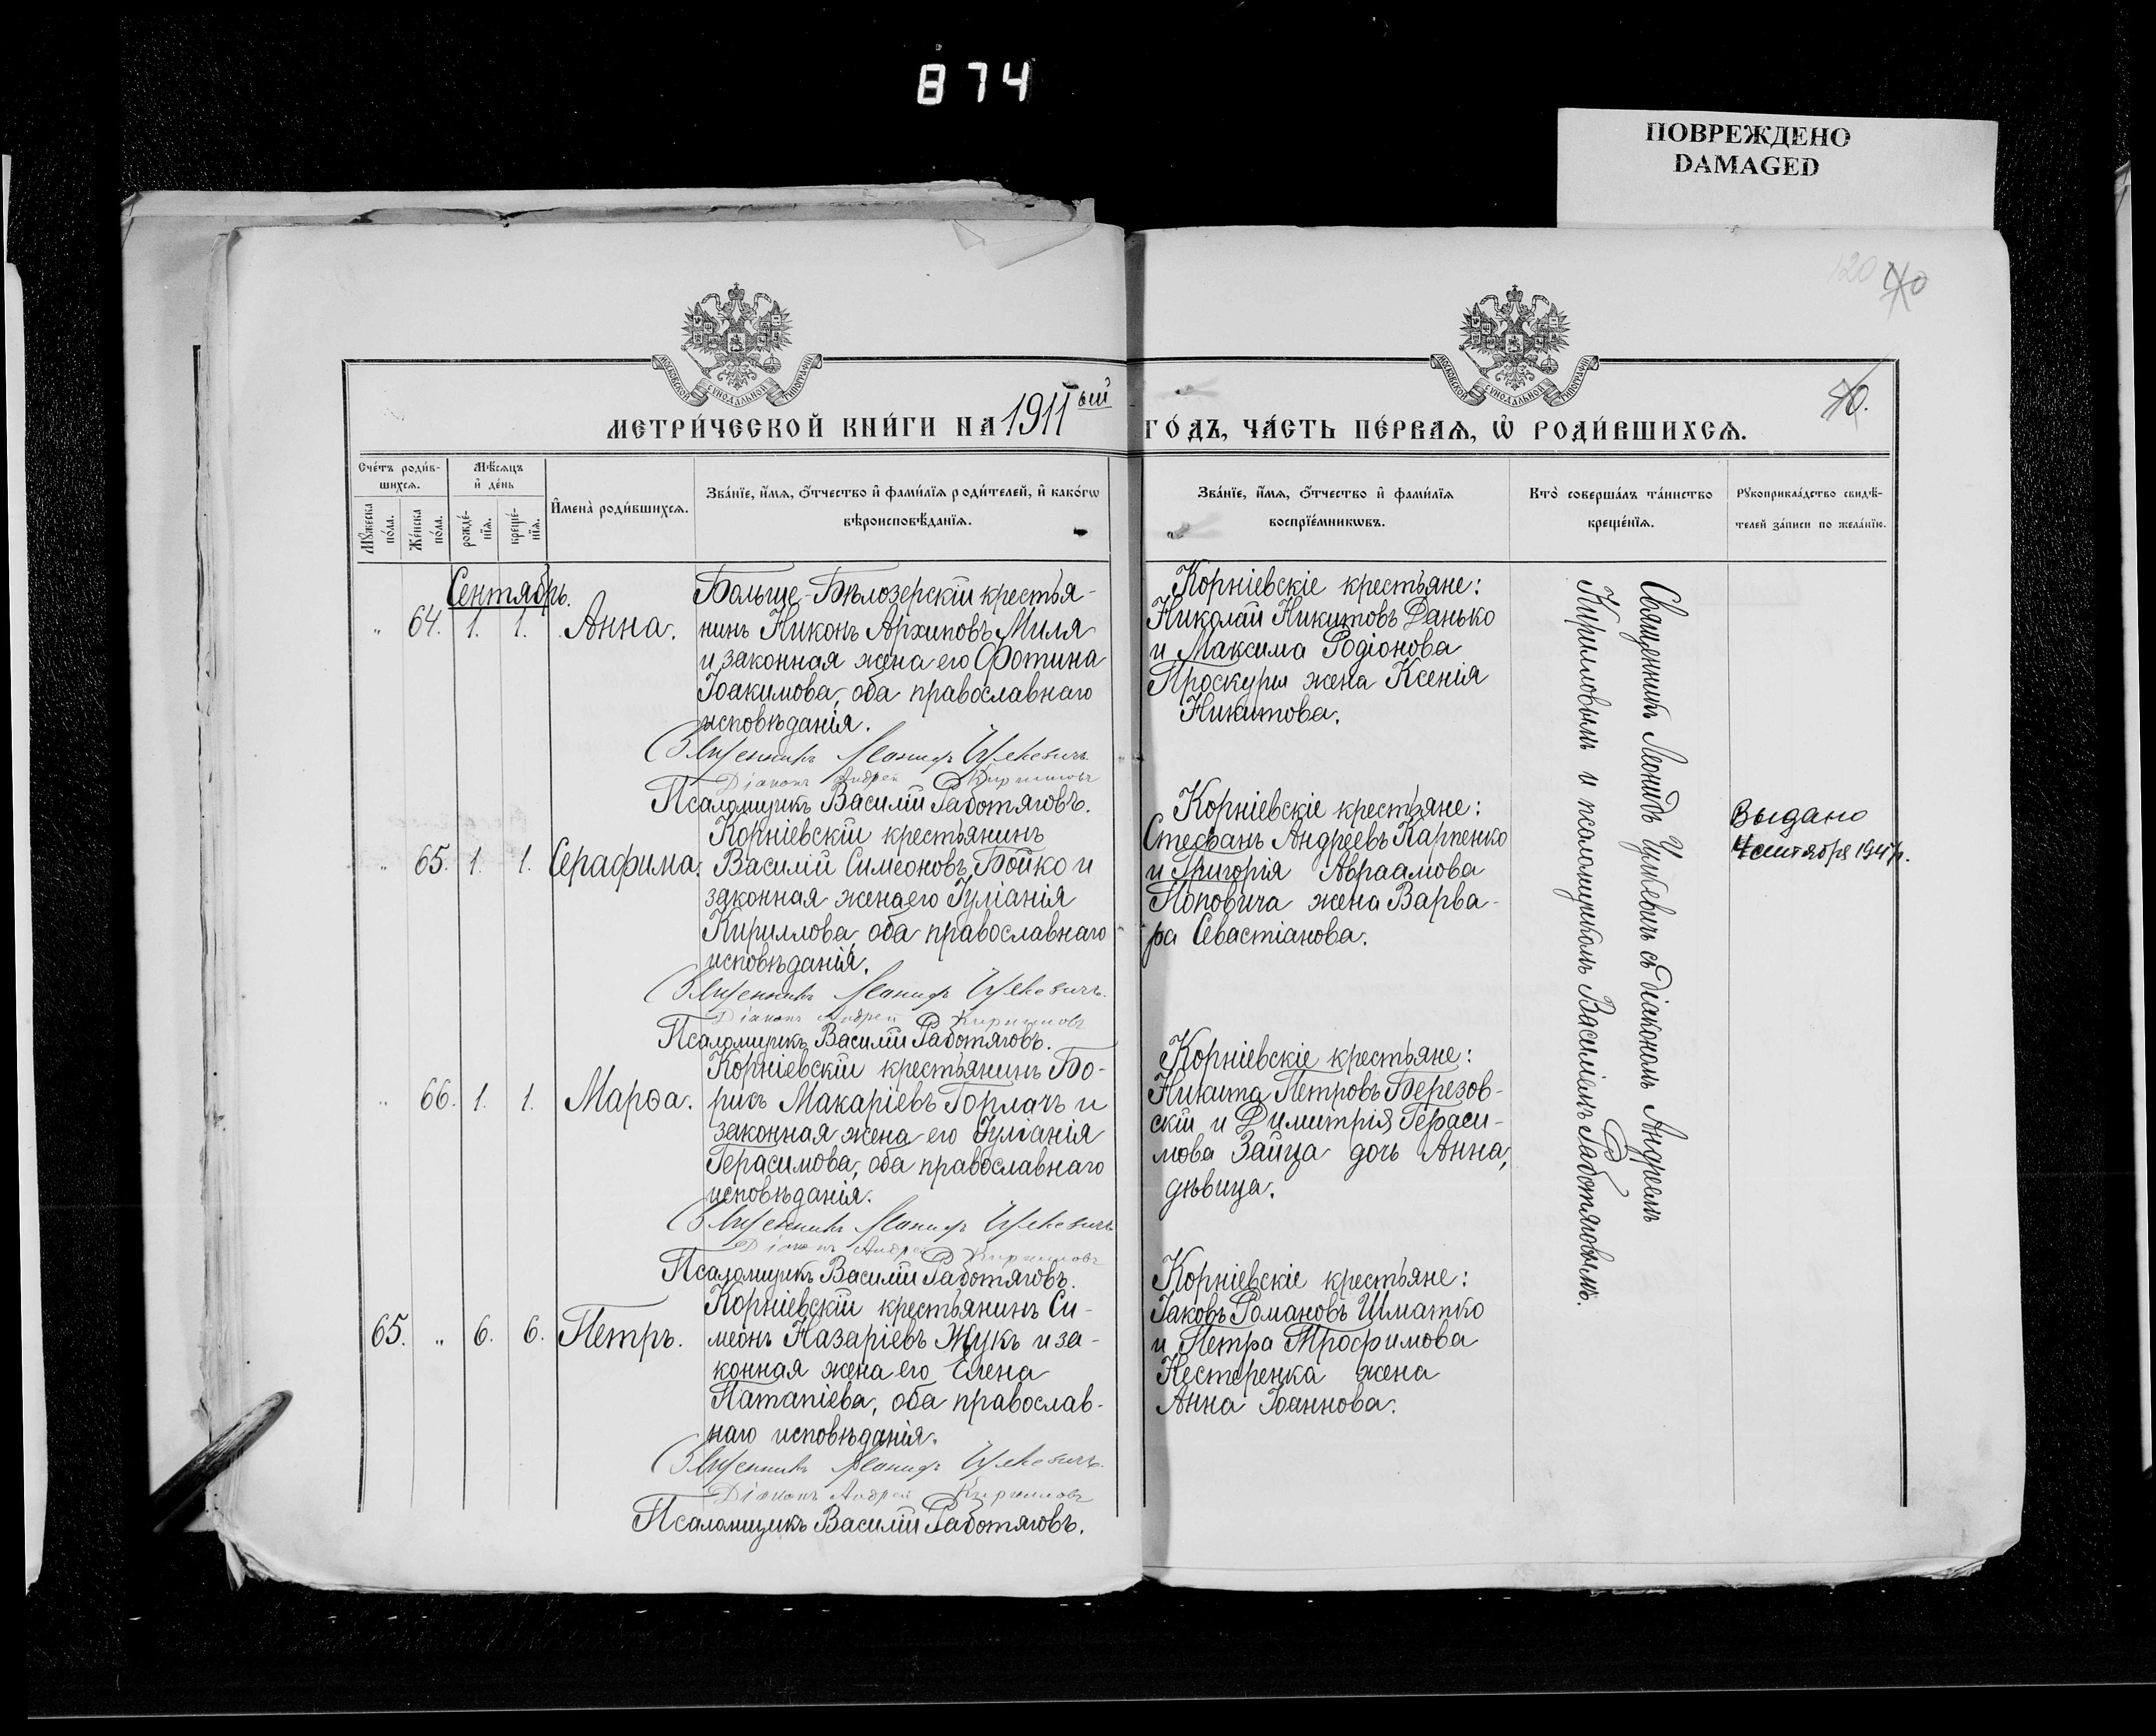 874
ПОВРЕЖДЕНО
DAMAGED
120
МЕТРИ́ЧЕСКОЙ КНИ́ГИ НА 1911ый ГО́ДЪ, ЧА́СТЬ ПЕ́РВАѦ, Ѽ РОДИ́ВШИХСѦ.
40.
Сче́тъ роди́в-
шихсѧ.
Мꙋжеска
по́ла.
Же́нска
по́ла.
Мѣ́сѧцъ
и҆ де́нь
рожде́-
нїѧ.
креще́-
нїѧ.
И҆мена̀ роди́вшихсѧ.
Зва́нїе, и҆́мѧ, ѻ҆́тчество и҆ фами́лїѧ роди́телей, и҆ како́гѡ
вѣроисповѣ́данїѧ.
Зва́нїе, и҆́мѧ, ѻ҆́тчество и҆ фами́лїѧ
воспрїе́мникѡвъ.
Кто̀ соверша́лъ та́инство
креще́нїѧ.
Рꙋкоприкла́дство свидѣ́-
телей за́писи по жела́нїю.
Сентябрь.
„ 64. 1. 1. Анна.
Больше-Бѣлозерскій крестья-
нинъ Никонъ Архиповъ Миля
и законная жена его Фотина
Іоакимова, оба православнаго
исповѣданія.
Священникъ Леонидъ Цукевичъ
Діаконъ Андрей Кирилловъ
Псаломщикъ Василій Работяговъ.
Корніевскіе крестьяне:
Николай Никитовъ Данько
и Максима Родіонова
Проскуры жена Ксенія
Никитова.
„ 65. 1. 1. Серафима.
Корніевскій крестьянинъ
Василій Симеоновъ Бойко и
законная жена его Іуліанія
Кириллова, оба православнаго
исповѣданія.
Священникъ Леонидъ Цукевичъ.
Діаконъ Андрей Кирилловъ
Псаломщикъ Василій Работяговъ.
Корніевскіе крестьяне:
Стефанъ Андреевъ Карпенко
и Григорія Авраамова
Поповича жена Варва-
ра Севастіанова.
Выдано
4 сентября 194
„ 66. 1. 1. Марѳа.
Корніевскій крестьянинъ Бо-
рисъ Макаріевъ Горлачъ и
законная жена его Іуліанія
Герасимова, оба православнаго
исповѣданія.
Священникъ Леонидъ Цукевичъ
Діаконъ Андрей Кирилловъ
Псаломщикъ Василій Работяговъ.
Корніевскіе крестьяне:
Никита Петровъ Березов-
скій и Димитрія Гераси-
мова Зайца дочь Анна,
дѣвица.
65. „ 6. 6. Петръ.
Корніевскій крестьянинъ Си-
меонъ Назаріевъ Жукъ и за-
конная жена его Елена
Патапіева, оба православ-
наго исповѣданія.
Священникъ Леонидъ Цукевичъ.
Діаконъ Андрей Кирилловъ
Псаломщикъ Василій Работяговъ.
Корніевскіе крестьяне:
Іаковъ Романовъ Шматко
и Петра Трофимова
Нестеренка жена
Анна Іоаннова.
Священникъ Леонидъ Цукевичъ съ діакономъ Андреемъ
Кирилловымъ и псаломщикомъ Василіемъ Работяговымъ.